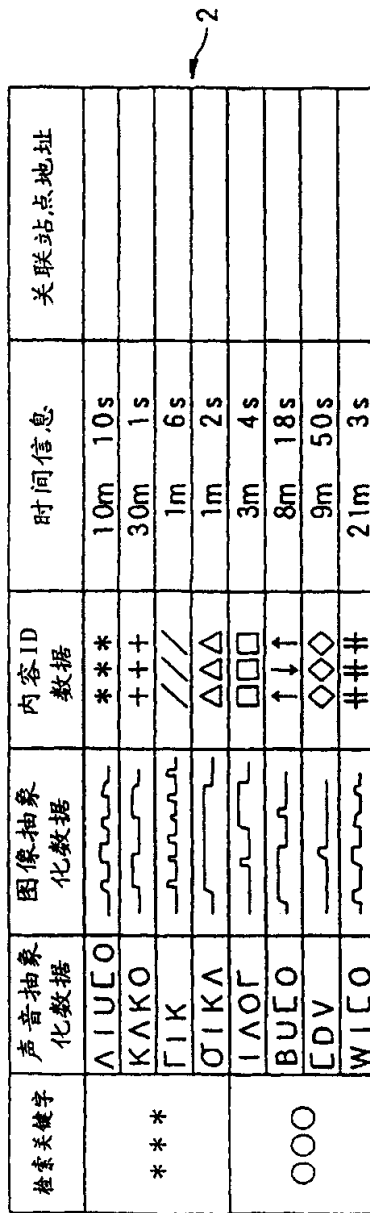 检索关键字
声音抽象
化数据
图像抽象
化数据
内容ID
数据
时间信息
关联站点地址
***
ΛIU[O
***
10m 10s
KΛKO
+++
30m 1s
ΓIK
///
1m 6s
σIKΛ
△△△
1m 2s
○○○
IΛOΓ
□□□
3m 4s
BU[O
↑↓↑
8m 18s
[DV
◇◇◇
9m 50s
WI[O
###
21m 3s
2